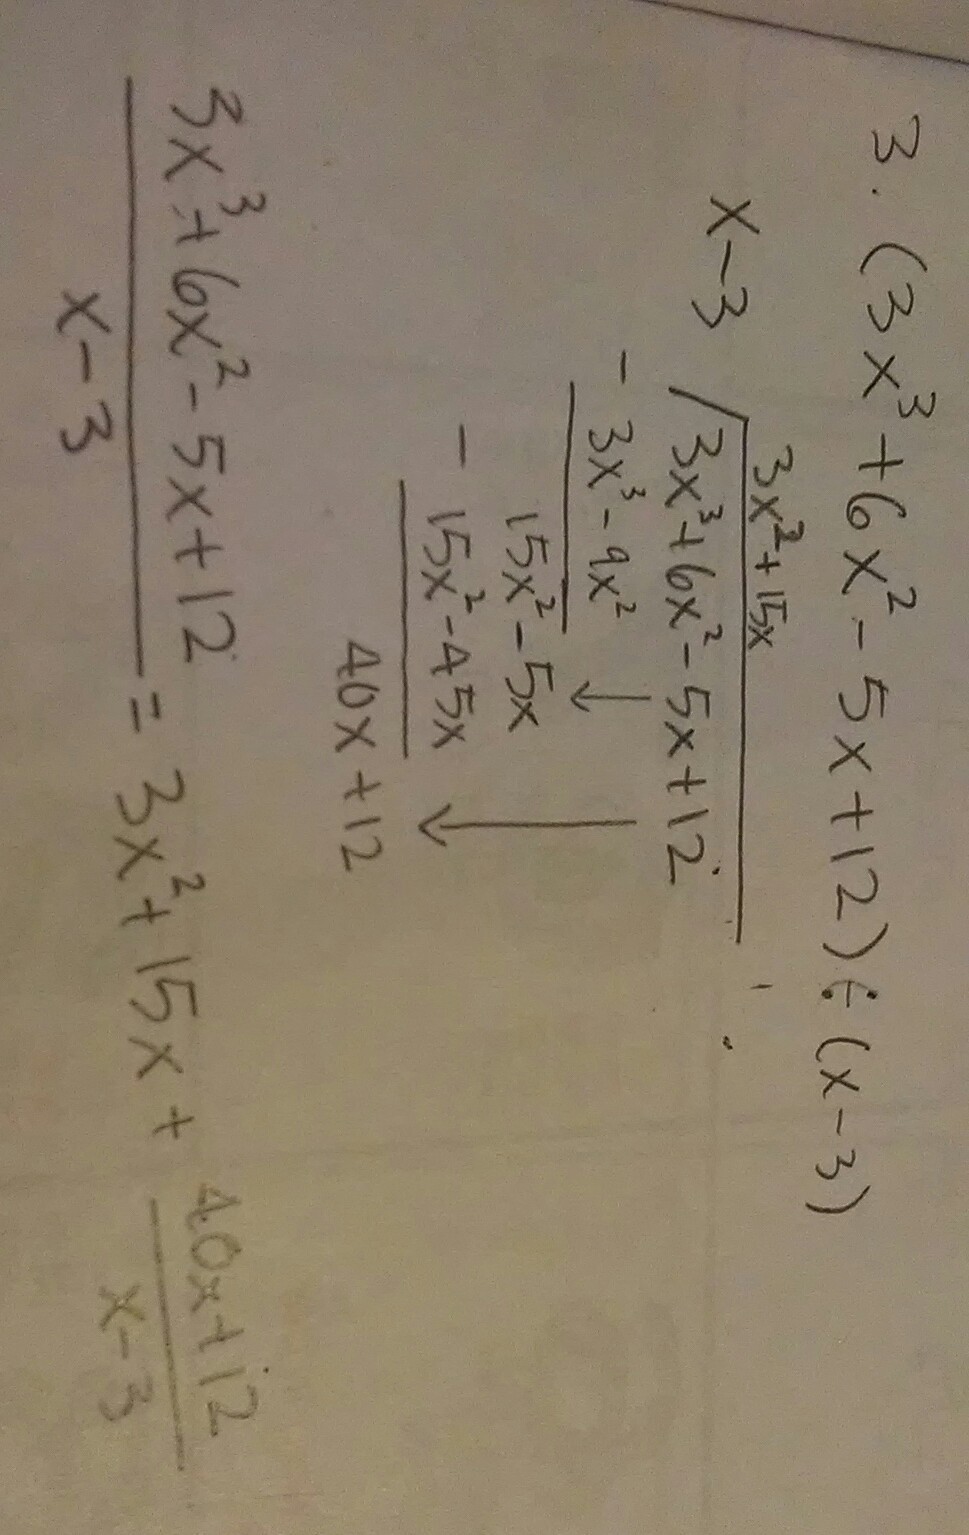 3. (3x³+6x²-5x+12)÷(x-3)
3x²+15x
x-3 3x³+6x²-5x+12
- 3x³-9x² ↓
15x²-5x
- 15x²-45x ↓
40x+12
3x³+6x²-5x+12 / x-3 = 3x²+15x+ 40x+12 / x-3